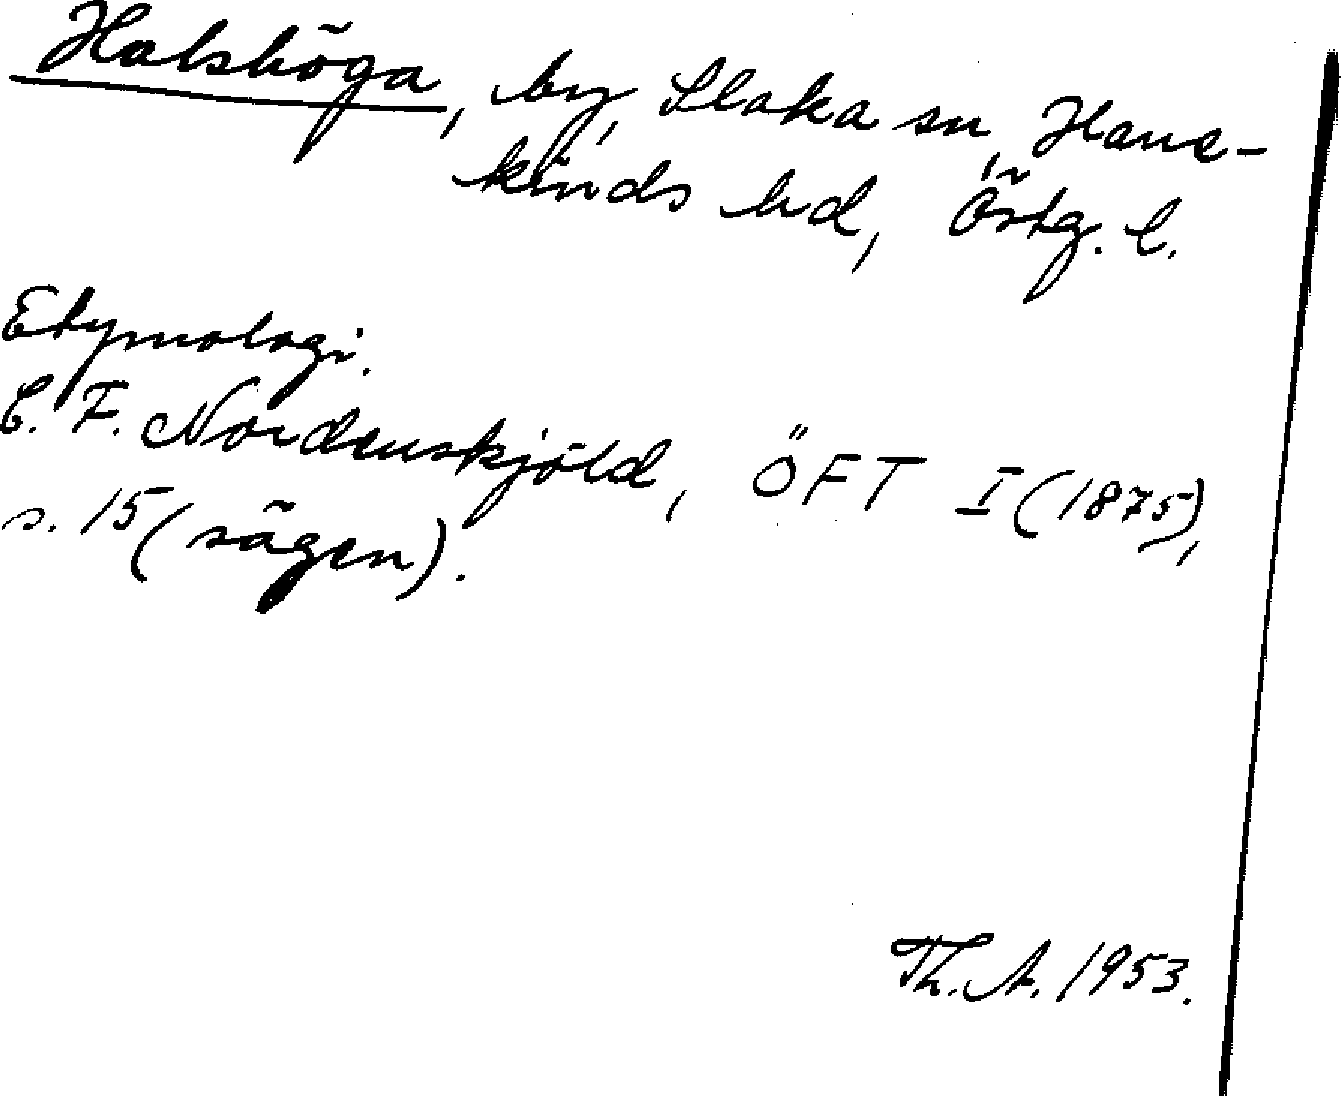 Halshöga, by, Slaka sn, Hane-
kinds hd, Östg. l.
Etymologi.
C. F. Nordenskjöld, ÖFT I (1875),
s. 15 (sägen).
Th. A. 1953.